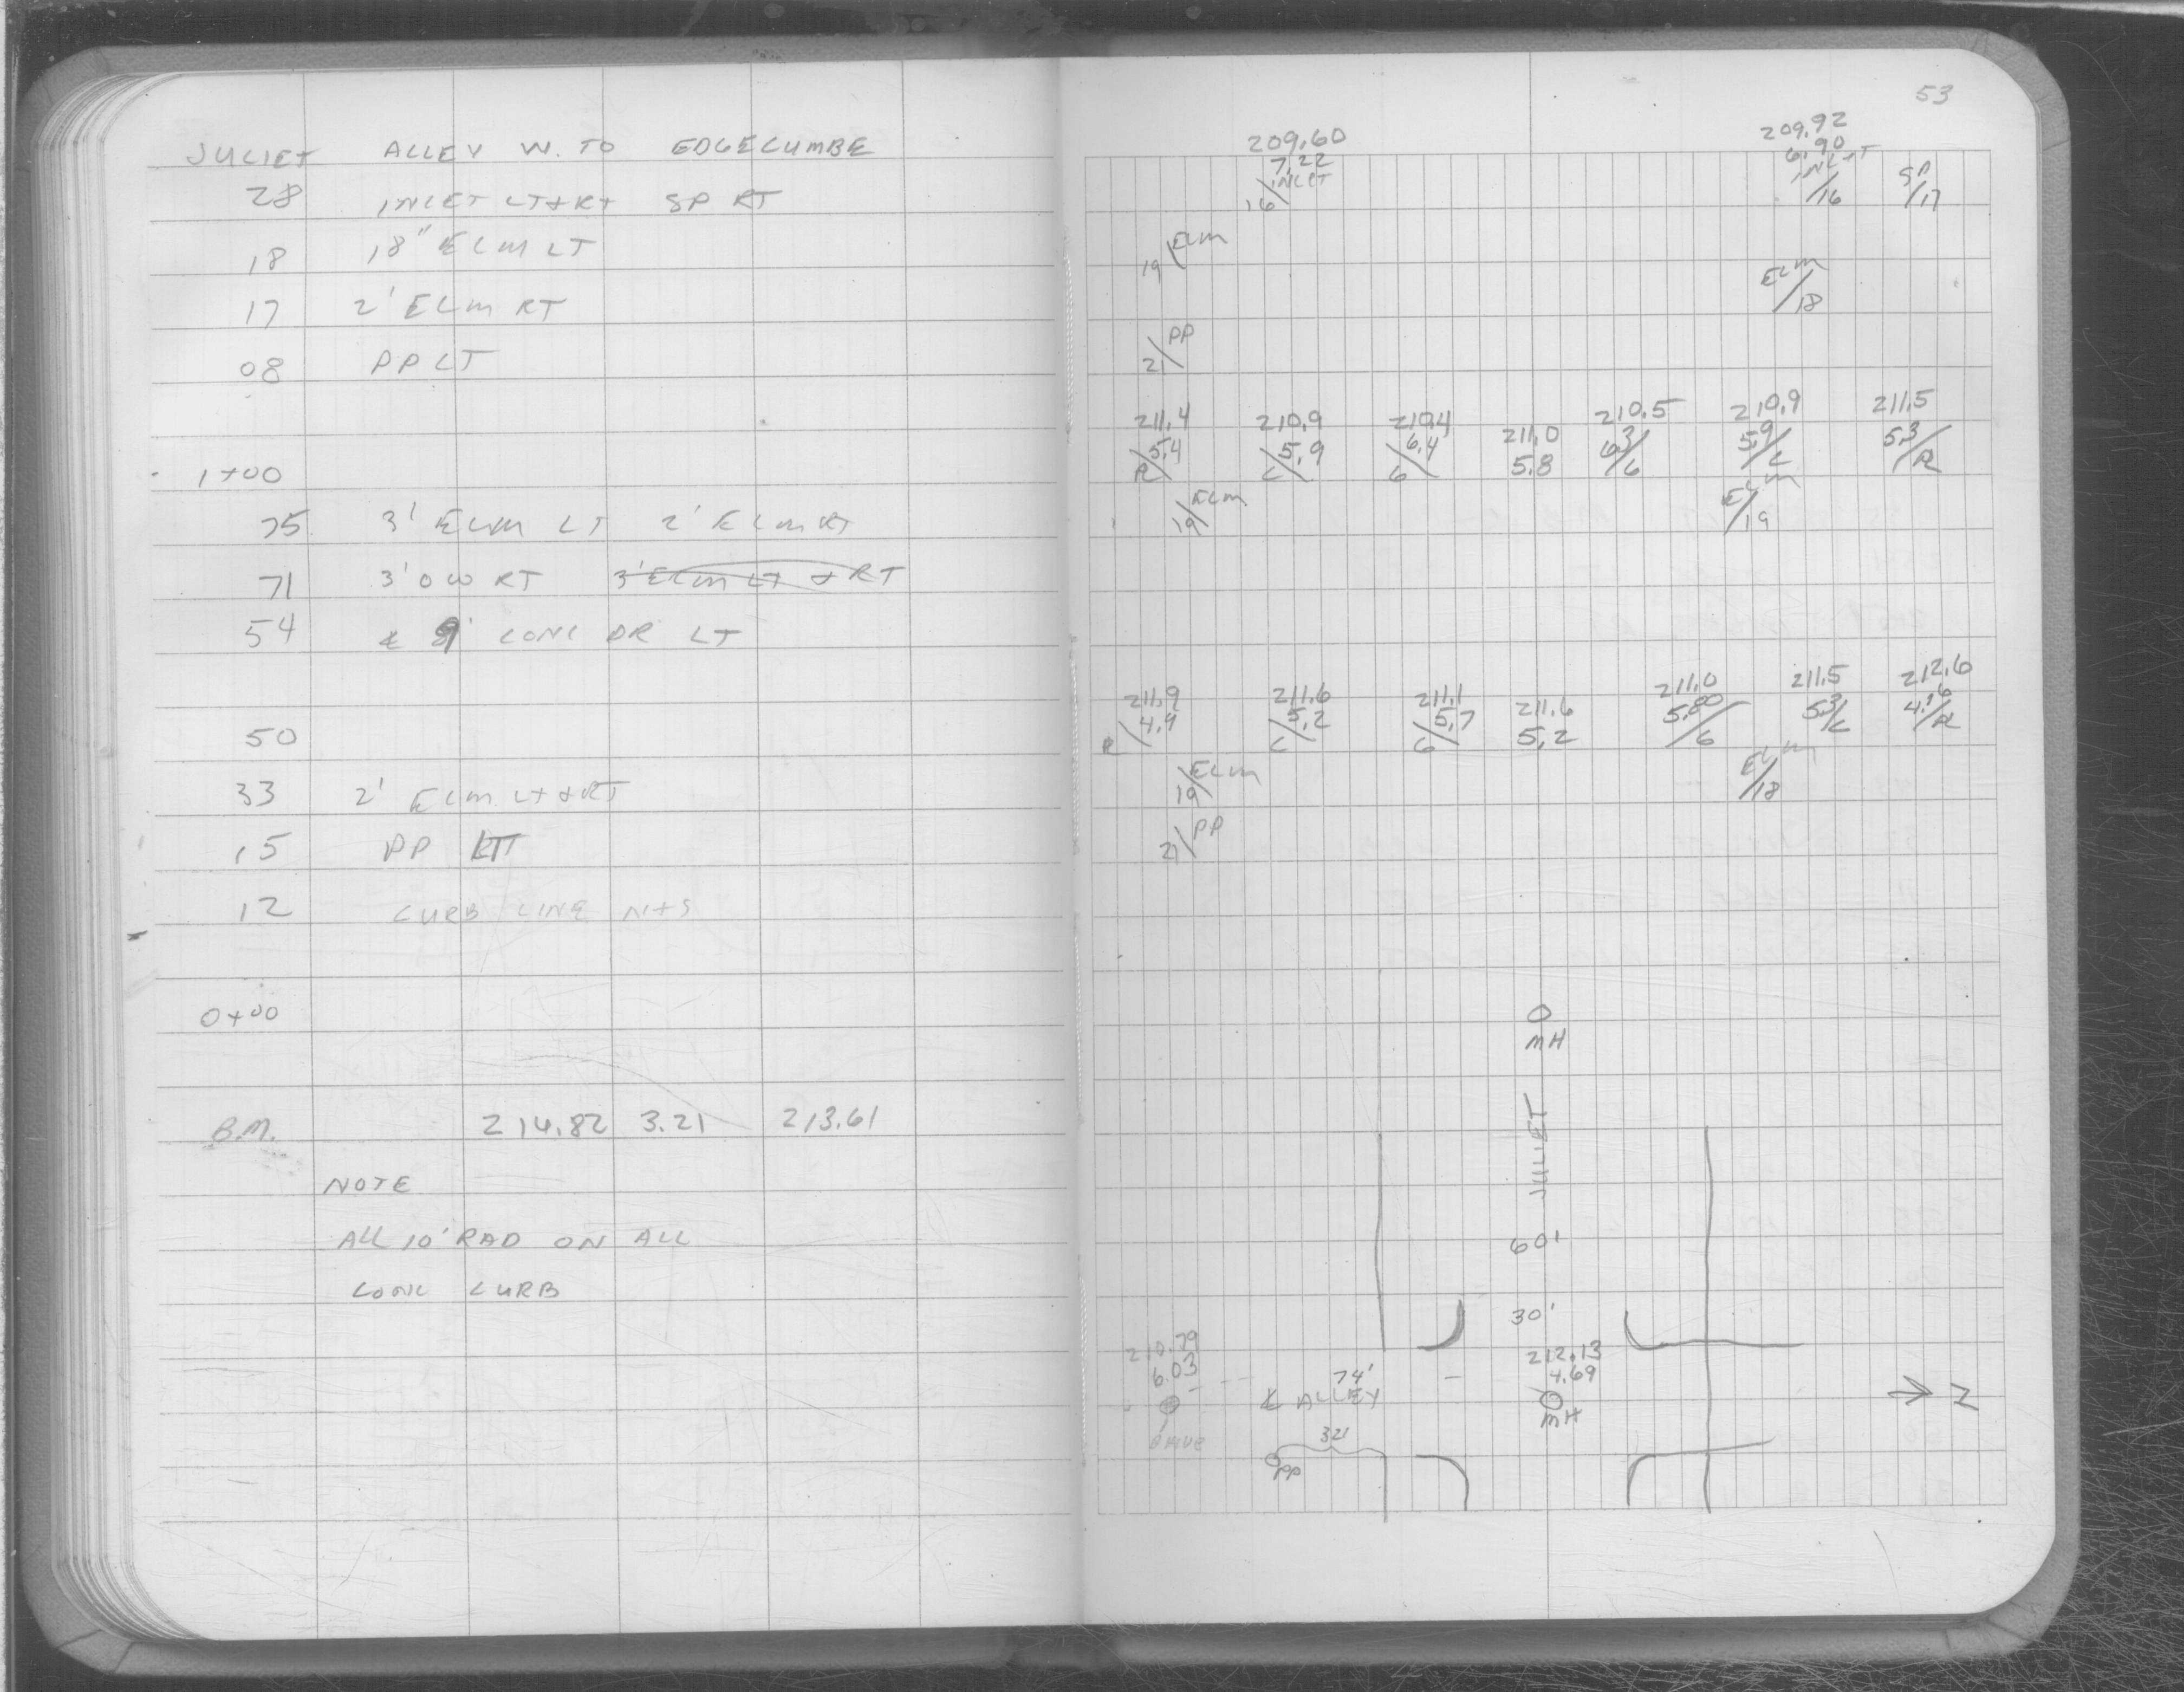 JULIET ALLEY W. TO EDGECUMBE
28 INLET LT+RT SP RT
18 18" ELM LT
17 2' ELM RT
08 PP LT
1+00
75 3' ELM LT 2' ELM RT
71 3' OW RT 3' ELM LT + RT
54 ℄ 9' CONC DR LT
50
33 2' ELM LT+RT
15 PP LT
12 CURB LINE N+S
0+00
B.M. 214.82 3.21 213.61
NOTE
ALL 10' RAD ON ALL
CONC CURB
53
209.60 209.92
7.22 6.90
INLET INLET SP
16 16 17
ELM
19
ELM
18
PP
21
211.4 210.9 210.4 211.0 210.5 210.9 211.5
5.4 5.9 6.4 5.8 6.3 5.9 5.3
R C G G C R
ELM ELM
19 19
211.9 211.6 211.1 211.6 211.0 211.5 212.6
4.9 5.2 5.7 5.2 5.80 5.3 4.6
R C G G C R
ELM ELM
19 18
PP
21
MH
JULIET
60'
30'
210.79 212.13
6.03 74' 4.69
℄ ALLEY MH
Z
DRIVE 32'
PP